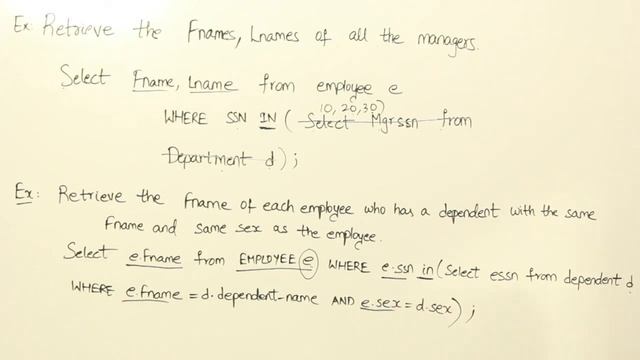 Ex: Retrieve the Fnames, Lnames of all the managers.
Select Fname, Lname from employee e
10, 20, 30
WHERE SSN IN ( Select Mgrssn from
Department d) ;
Ex: Retrieve the fname of each employee who has a dependent with the same
Fname and same sex as the employee.
Select e.fname from EMPLOYEE e WHERE e.ssn in (Select essn from dependent d
WHERE e.fname = d.dependent-name AND e.sex = d.sex) ;